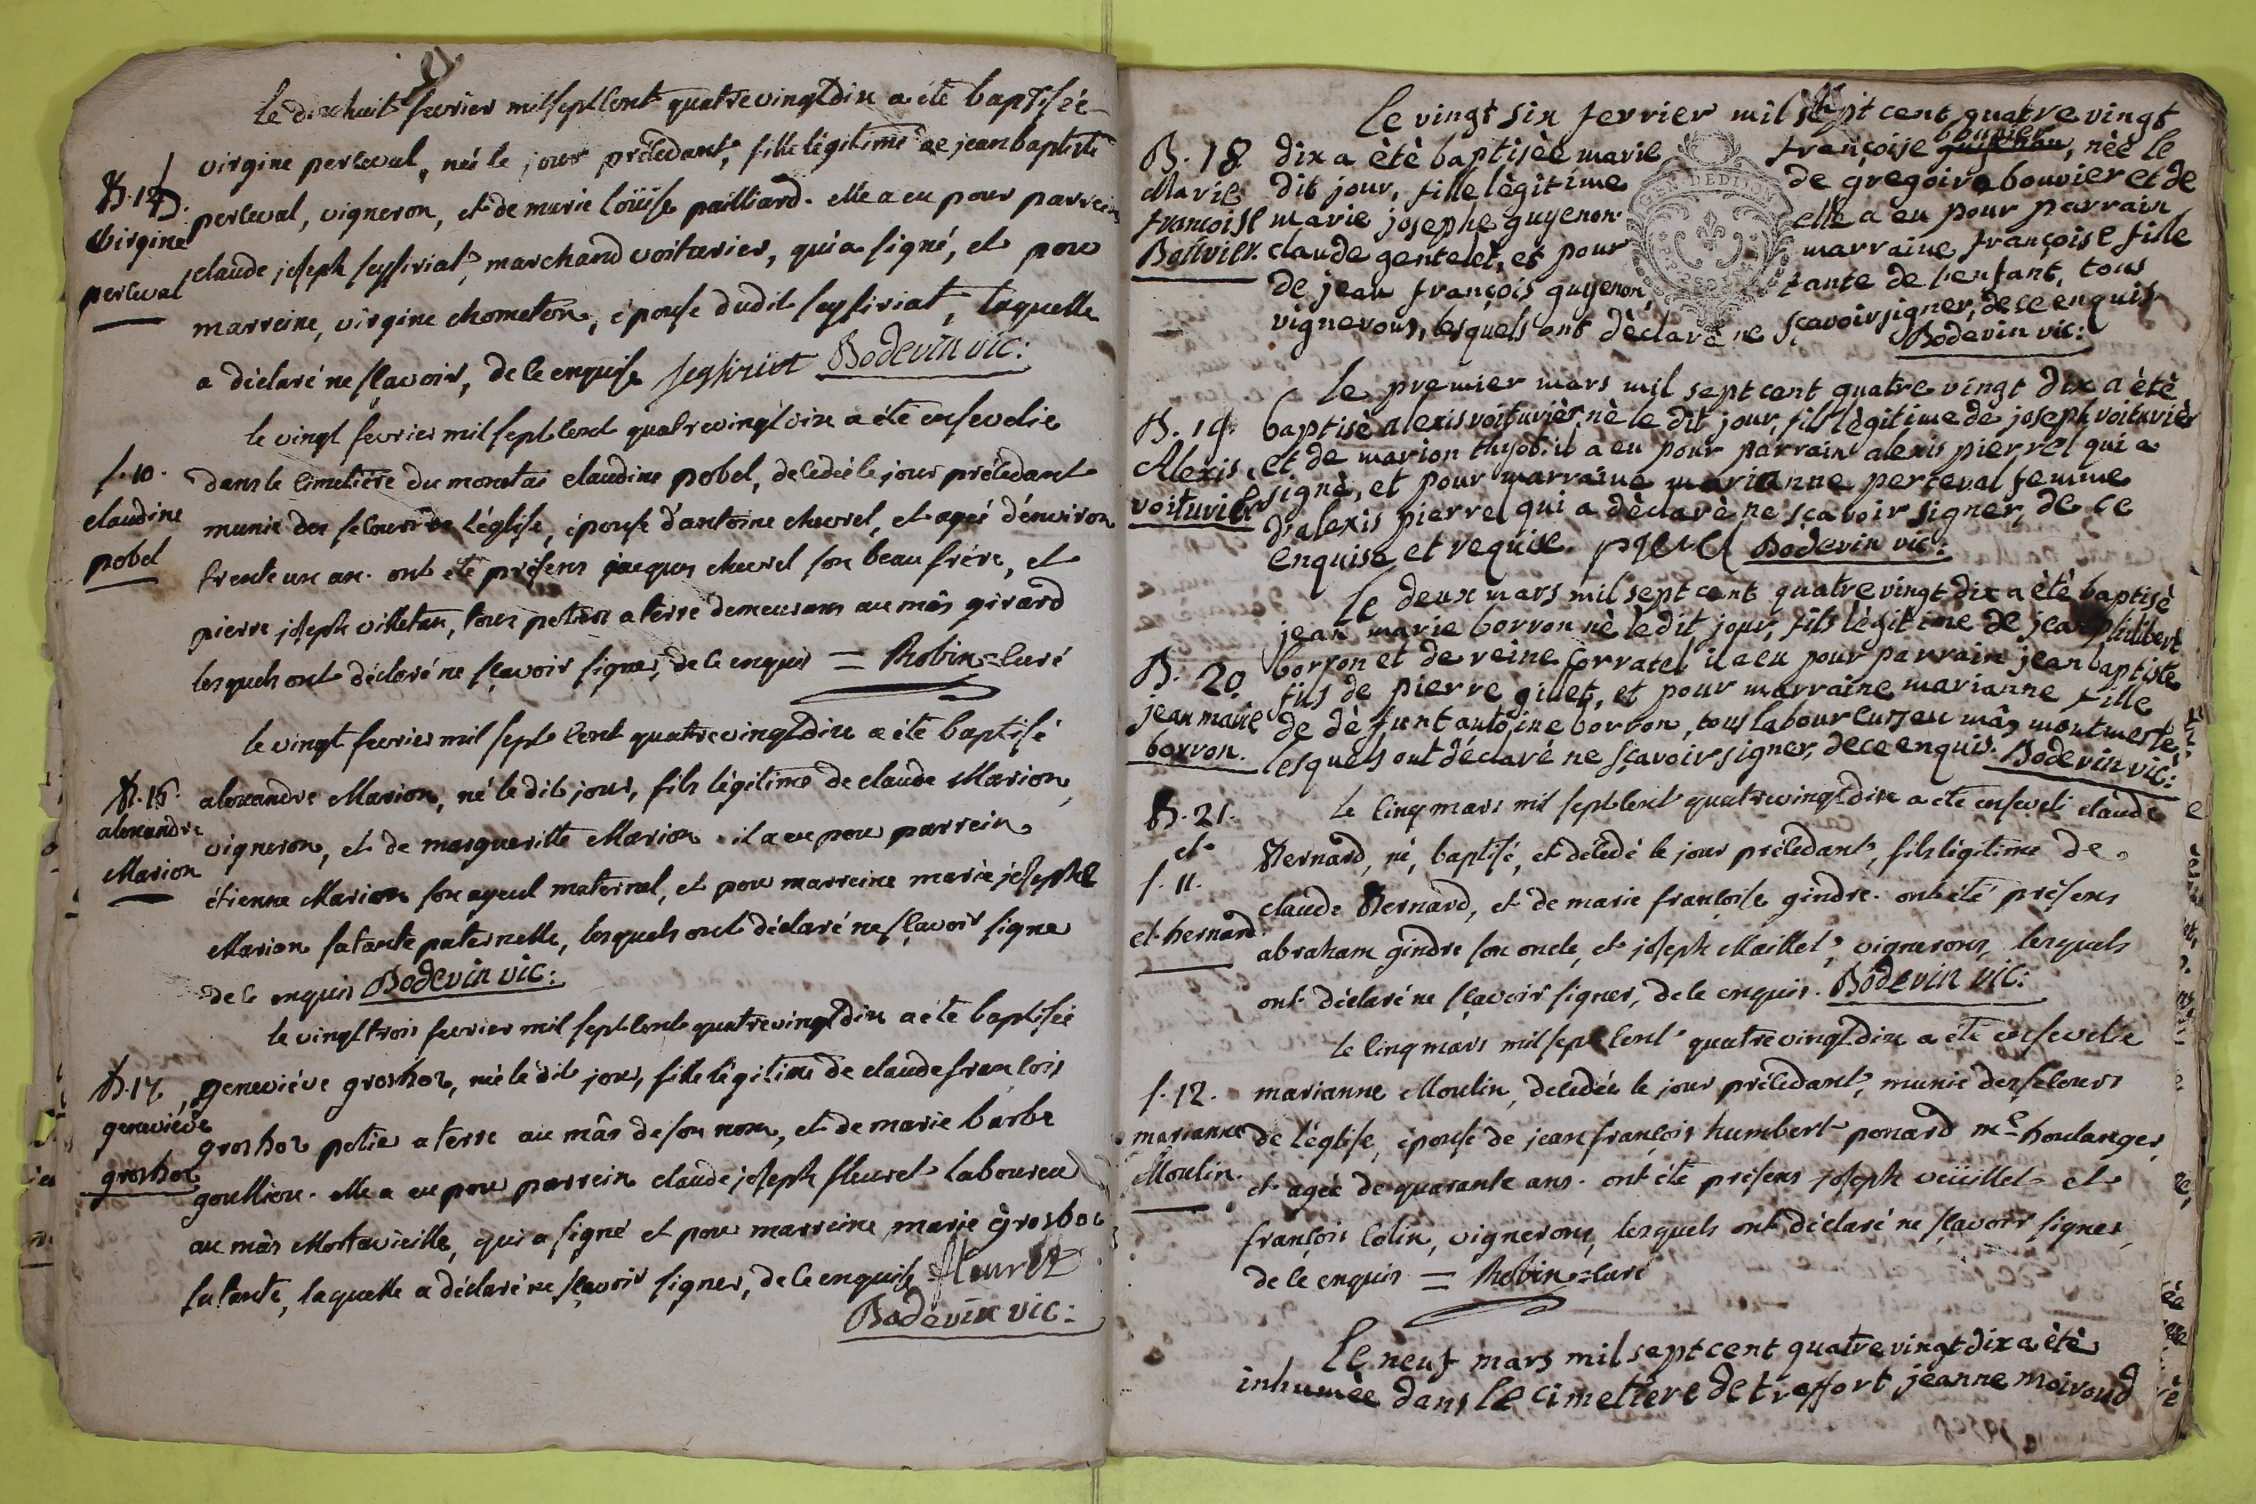 Le dix huit fevrier mil sept cent quatre vingt dix a été baptisée
virgine perceval, née le jour précedant, fille légitime de jean baptiste
B. 15.
Virgine
perceval
perceval, vigneron, et de marie loüise pailliard. elle a eu pour parrein
claude joseph seyssiriat, marchand voiturier, qui a signé, et pour
marreine, virgine chometon, épouse dudit seyssiriat, laquelle
a déclaré ne sçavoir, de ce enquise seyssiriat Bodevin vic:
le vingt fevrier mil sept cent quatre vingt dix a été ensevelie
s. 10.
claudine
pobel
dans le cimetière du monetai claudine pobel, decedée le jour précedant
munie des secours de l'église, épouse d'antoine chevrel, et agée d'environ
trente un an. ont été présens jacques chevrel son beau frére, et
pierre joseph villetan, tous petits a terre demeurans au mâs girard
lesquels ont déclaré ne sçavoir signer, de ce enquis = Robin = curé
le vingt fevrier mil sept cent quatre vingt dix a été baptisé
B. 16.
alexandre
Marion
alexandre Marion, né le dit jour, fils légitime de claude Marion,
vigneron, et de margueritte Marion. il a eu pour parrein
étienne Marion son ayeul maternel, et pour marreine marie josephe
Marion sa tante paternelle, lesquels ont déclaré ne sçavoir signe
de ce enquis Bodevin vic:
le vingt trois fevrier mil sept cent quatre vingt dix a été baptisée
B. 17.
geneviéve
grosboz
geneviéve grosboz, née le dit jour, fille légitime de claude françois
grosboz petit a terre au mâs de son nom, et de marie barbe
goullion. elle a eu pour parrein claude joseph fleuret laboureu
au mâs Montavieille, qui a signé et pour marreine marie grosboz
sa tante, laquelle a déclaré ne sçavoir signer, de ce enquise fleuret
Bodevin vic:
Le vingt six fevrier mil sept cent quatre vingt
B. 18
Marie
françoise
Bouvier.
dix a été baptisèe marie françoise bouvier, nèe le
dit jour, fille lègitime de gregoire bouvier et de
marie josephe guyenon. elle a eu pour parrain
claude gentelet, et pour marraine françoise fille
de jean françois guyenon, tante de l'enfant, tous
vignerons, lesquels ont dèclarè ne sçavoir signer, de ce enquis
Bodevin vic:
GEN. DE DIJON
Le premier mars mil sept cent quatre vingt dix a ètè
B. 19.
Alexis
voiturier
baptisè alexis voiturièr nè le dit jour, fils lègitime de joseph voiturièr
et de marion thyot. il a eu pour parrain alexis pierrel qui a
signè, et pour marraine marianne perceval femme
d'alexis pierrel qui a dèclarè ne sçavoir signer, de ce
enquise et requise. pierrel Bodevin vic:
Le deux mars mil sept cent quatre vingt dix a ètè baptisè
B. 20
jean marie
borron.
jean marie borron nè le dit jour, fils lègitime de jean philibert
borron et de reine corratel il a eu pour parrain jean baptiste
fils de pierre gillet, et pour marraine marianne fille
de dèfunt antoine borron, tous laboureurs au mâs montmerle
lesquels ont dèclarè ne sçavoir signer, de ce enquis. Bodevin vic:
B. 21.
et
s. 11.
cl. bernard.
le cinq mars mil sept cent quatre vingt dix a été enseveli claude
Bernard, né, baptisé, et décedé le jour précedant, fils légitime de
claude Bernard, et de marie françoise gindre. ont été présens
abraham gindre son oncle, et joseph Maillet, vignerons, lesquels
ont déclaré ne sçavoir signer, de ce enquis. Bodevin vic:
le cinq mars mil sept cent quatre vingt dix a été ensevelie
s. 12.
marianne
Moulin.
marianne Moulin, decedée le jour précedant, munie des secours
de l'église, épouse de jean françois humbert ponard me. boulanger,
et agée de quarante ans. ont été présens joseph veüillet et
françois colin, vignerons, lesquels ont déclaré ne sçavoir signer,
de ce enquis = Robin = curé
Le neuf mars mil sept cent quatre vingt dix a été
inhumèe dans le cimetiere de treffort jeanne moiroud